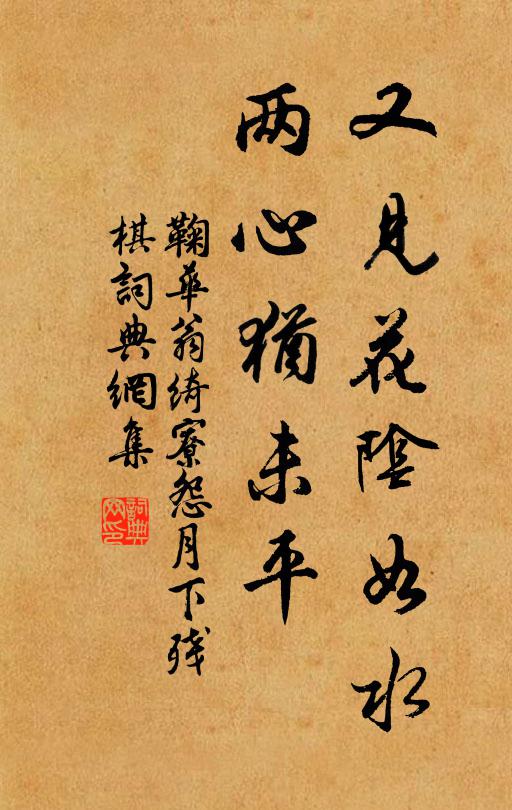 又见花陰如水
两心猶未平
鞠華翁綺寮怨月下残
棋詞典網集
詞典
网印